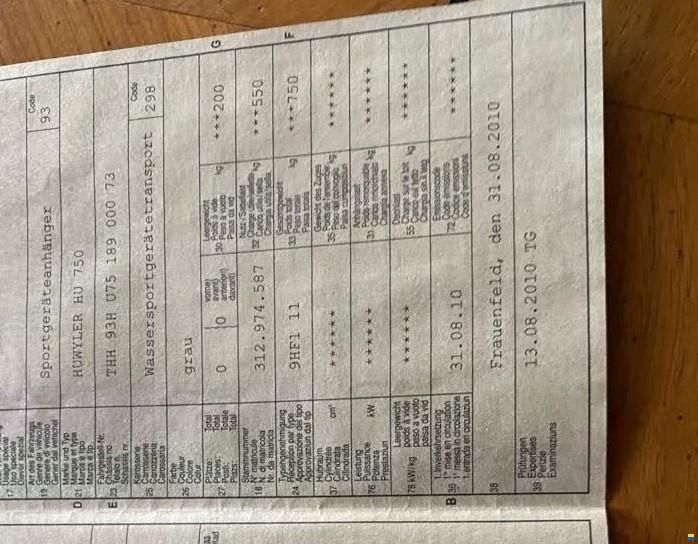 17
Usage spécial
19
Art des Fahrzeugs
Genre de véhicule
Genere di veicolo
Gener dal vehichel
Sportgeräteanhänger
Code
93
D 21
Marke und Typ
Marque et type
Marca e tipo
Marca e tip
HUWYLER HU 750
E 23
Fahrgestell-Nr.
Châssis no
Telaio n.
Schassis nr.
THH 93H U75 189 000 73
25
Karosserie
Carrosserie
Carrozzeria
Carossaria
Wassersportgerätetransport
Code
298
26
Farbe
Couleur
Colore
Colur
grau
27
Plätze:
Places:
Posti:
Plazs:
Total
Total
Totale
Total
0
0
vorne)
avant)
anteriori)
davant)
30
Leergewicht
Poids à vide
Peso a vuoto
Paisa da vid
kg
***200
G
18
Stammnummer
N° matricule
N. di matricola
Nr. da matricla
312.974.587
32
kg
***550
24
Typengenehmigung
Réception par type
Approvazione del tipo
Approvaziun dal tip
9HF1 11
33
Gesamtgewicht
Poids total
Peso totale
Paisa totala
kg
***750
F
37
Hubraum
Cylindrée
Cilindrata
Cilindrada
cm³
******
35
Gewicht des Zuges
kg
******
76
Leistung
Puissance
Potenza
Prestaziun
kW
******
31
Anhängelast
kg
******
78 kW/kg
Leergewicht
poids à vide
peso a vuoto
paisa da vid
******
55
Dachlast
kg
******
B 36
1. Inverkehrsetzung
1re mise en circulation
1a messa in circolazione
1. entrada en circulaziun
31.08.10
72
Emissionscode
Code émissions
Codice emissioni
Code d'emissiuns
******
38
Frauenfeld, den 31.08.2010
39
Prüfungen
Expertises
Perizie
Examinaziuns
13.08.2010 TG